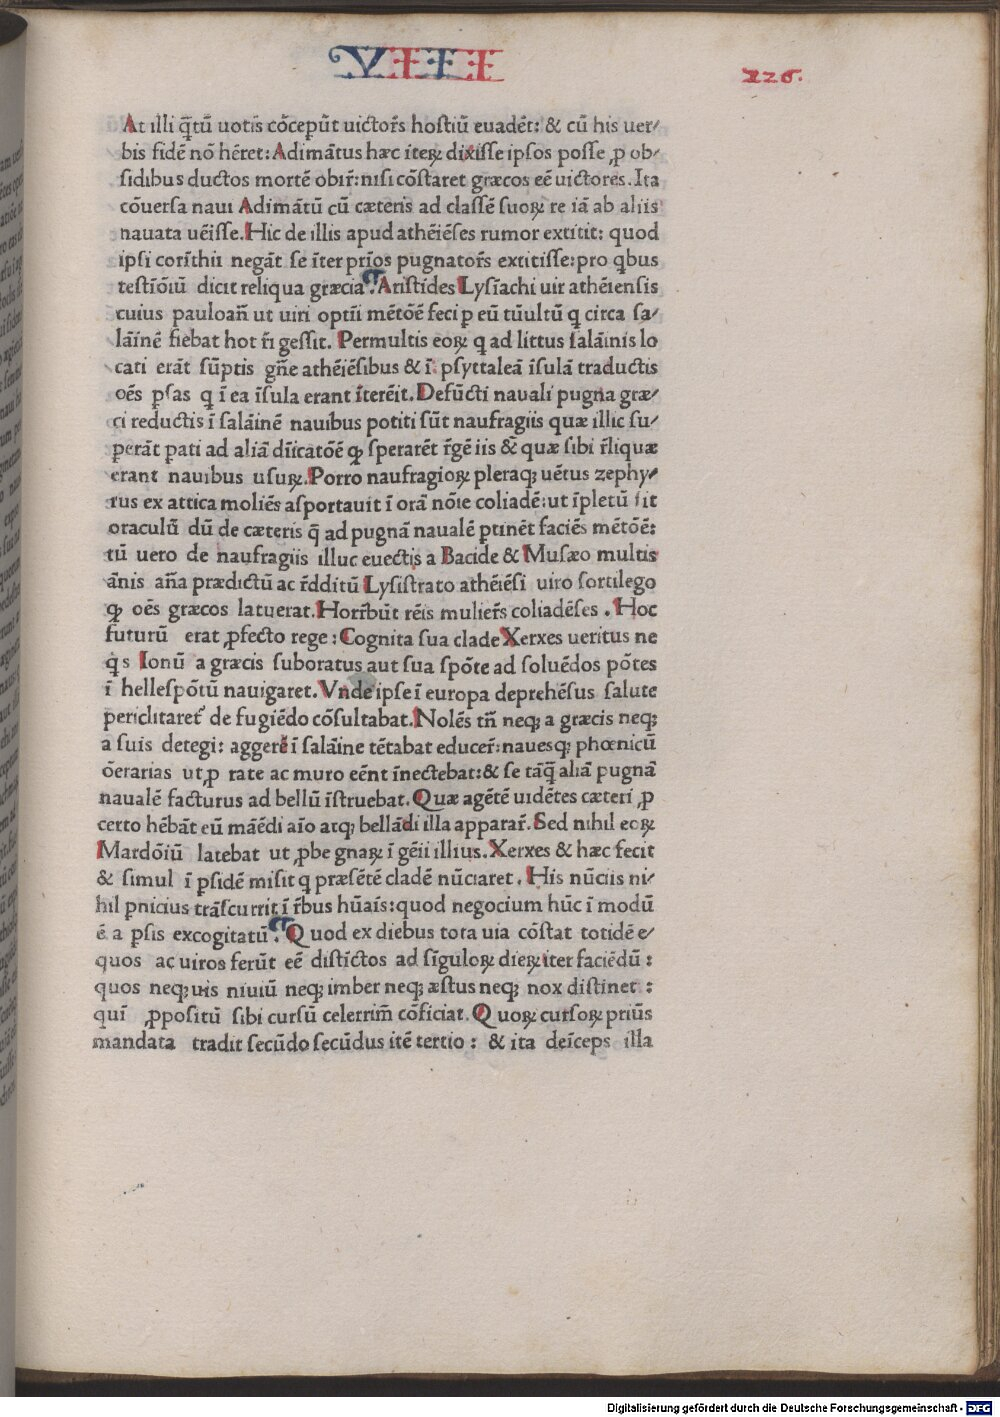 VIII
226.
At illi q̄tū uotis cōcepūt uictoꝛs hostiū euadēt: & cū his uer⸗
bis fidē nō hēret: Adimātus hæc iteꝝ dixisse ipsos posse ꝓ ob⸗
sidibus ductos mortē obir̄: nisi cōstaret græcos eē uictores. Ita
cōuersa naui Adimātū cū cæteris ad classē suoꝝ re iā ab aliis
nauata uēisse. Hic de illis apud athēiēses rumor extitit: quod
ipsi corīthii negāt se īter prīos pugnator̄s extitisse: pro qbus
testīōiū dicit reliqua græcia. Aristides Lysīachi uir athēiensis
cuius pauloan̄ ut uiri optīi mētōē feci ꝑ eū tūultū q circa sa⸗
lāinē fiebat hot r̄i gessit. Permultis eoꝝ q ad littus salāinis lo
cati erāt sūptis gn̄e athēiēsibus & ī psyttaleā īsulā traductis
oēs ꝑsas q ī ea īsula erant īterēit. Defūcti nauali pugna græ⸗
ci reductis ī salāinē nauibus potiti sūt naufragiis quæ illic su⸗
perāt pati ad aliā dīicatōē ꝙ sperarēt r̄gē iis & quæ sibi r̄liquæ
erant nauibus usuꝝ. Porro naufragioꝝ pleraqꝫ uētus zephy⸗
rus ex attica moliēs asportauit ī orā nōie coliadē: ut īpletū sit
oraculū dū de cæteris q̄ ad pugnā naualē ptinēt faciēs mētōē:
tū uero de naufragiis illuc euectis a Bacide & Musæo multis
ānis an̄a prædictū ac r̄dditū Lysistrato athēiēsi uiro sortilego
ꝙ oēs græcos latuerat. Horr̄būt rēis mulier̄s coliadēses. Hoc
futurū erat ꝓfecto rege: Cognita sua clade Xerxes ueritus ne
q̄s Ionū a græcis suboratus aut sua spōte ad soluēdos pōtes
ī hellespōtū nauigaret. Vnde ipse ī europa deprehēsus salute
periclitaret᷑ de fugiēdo cōsultabat. Nolēs tn̄ neqꝫ a græcis neqꝫ
a suis detegi: aggerē ī salāine tētabat educer̄: nauesqꝫ phœnicū
ōerarias ut ꝓ rate ac muro eēnt īnectebat: & se tāq̄ aliā pugnā
naualē facturus ad bellū īstruebat. Quæ agētē uidētes cæteri ꝓ
certo hēbāt eū māēdi aīo atqꝫ bellādi illa apparar̄. Sed nihil eoꝝ
Mardōiū latebat ut ꝓbe gnaꝝ ī gēii illius. Xerxes & hæc fecit
& simul ī ꝑsidē misit q præsētē cladē nūciaret. His nūciis ni⸗
hil pnicius trāscurrit ī r̄bus hūaīs: quod negocium hūc ī modū
ē a ꝑsis excogitatū. Quod ex diebus tota uia cōstat totidē e⸗
quos ac uiros ferūt eē distīctos ad sīguloꝝ dieꝝ iter faciēdū:
quos neqꝫ uis niuiū neqꝫ imber neqꝫ æstus neqꝫ nox distinet:
quī ꝓpositū sibi cursū celerrim̄ cōficiat. Quoꝝ cursoꝝ priūs
mandata tradit secūdo secūdus itē tertio: & ita deīceps illa
Digitalisierung gefördert durch die Deutsche Forschungsgemeinschaft - DFG